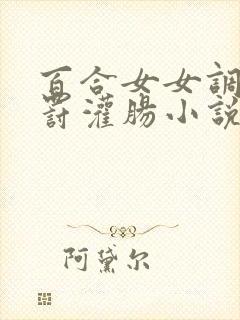 百合女女調
罸灌腸小説
阿黛尔